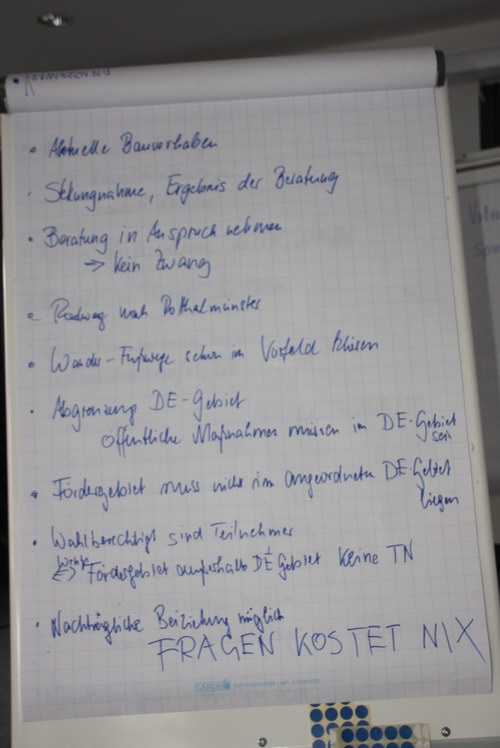 • Aktuelle Bauvorhaben
• Stellungnahme, Ergebnis der Beratung
• Beratung in Anspruch nehmen
→ kein Zwang
• Radweg nach Rotthalmünster
• Wander-Fußwege schon im Vorfeld klären
• Abgrenzung DE-Gebiet
öffentliche Maßnahmen müssen im DE-Gebiet
sein
• Fördergebiet muss nicht im angeordneten DE-Gebiet
liegen
• Wahlberechtigt sind Teilnehmer
→ Fördergebiet außerhalb DE Gebiet keine TN
• Nachträgliche Beiziehung möglich
FRAGEN KOSTET NIX